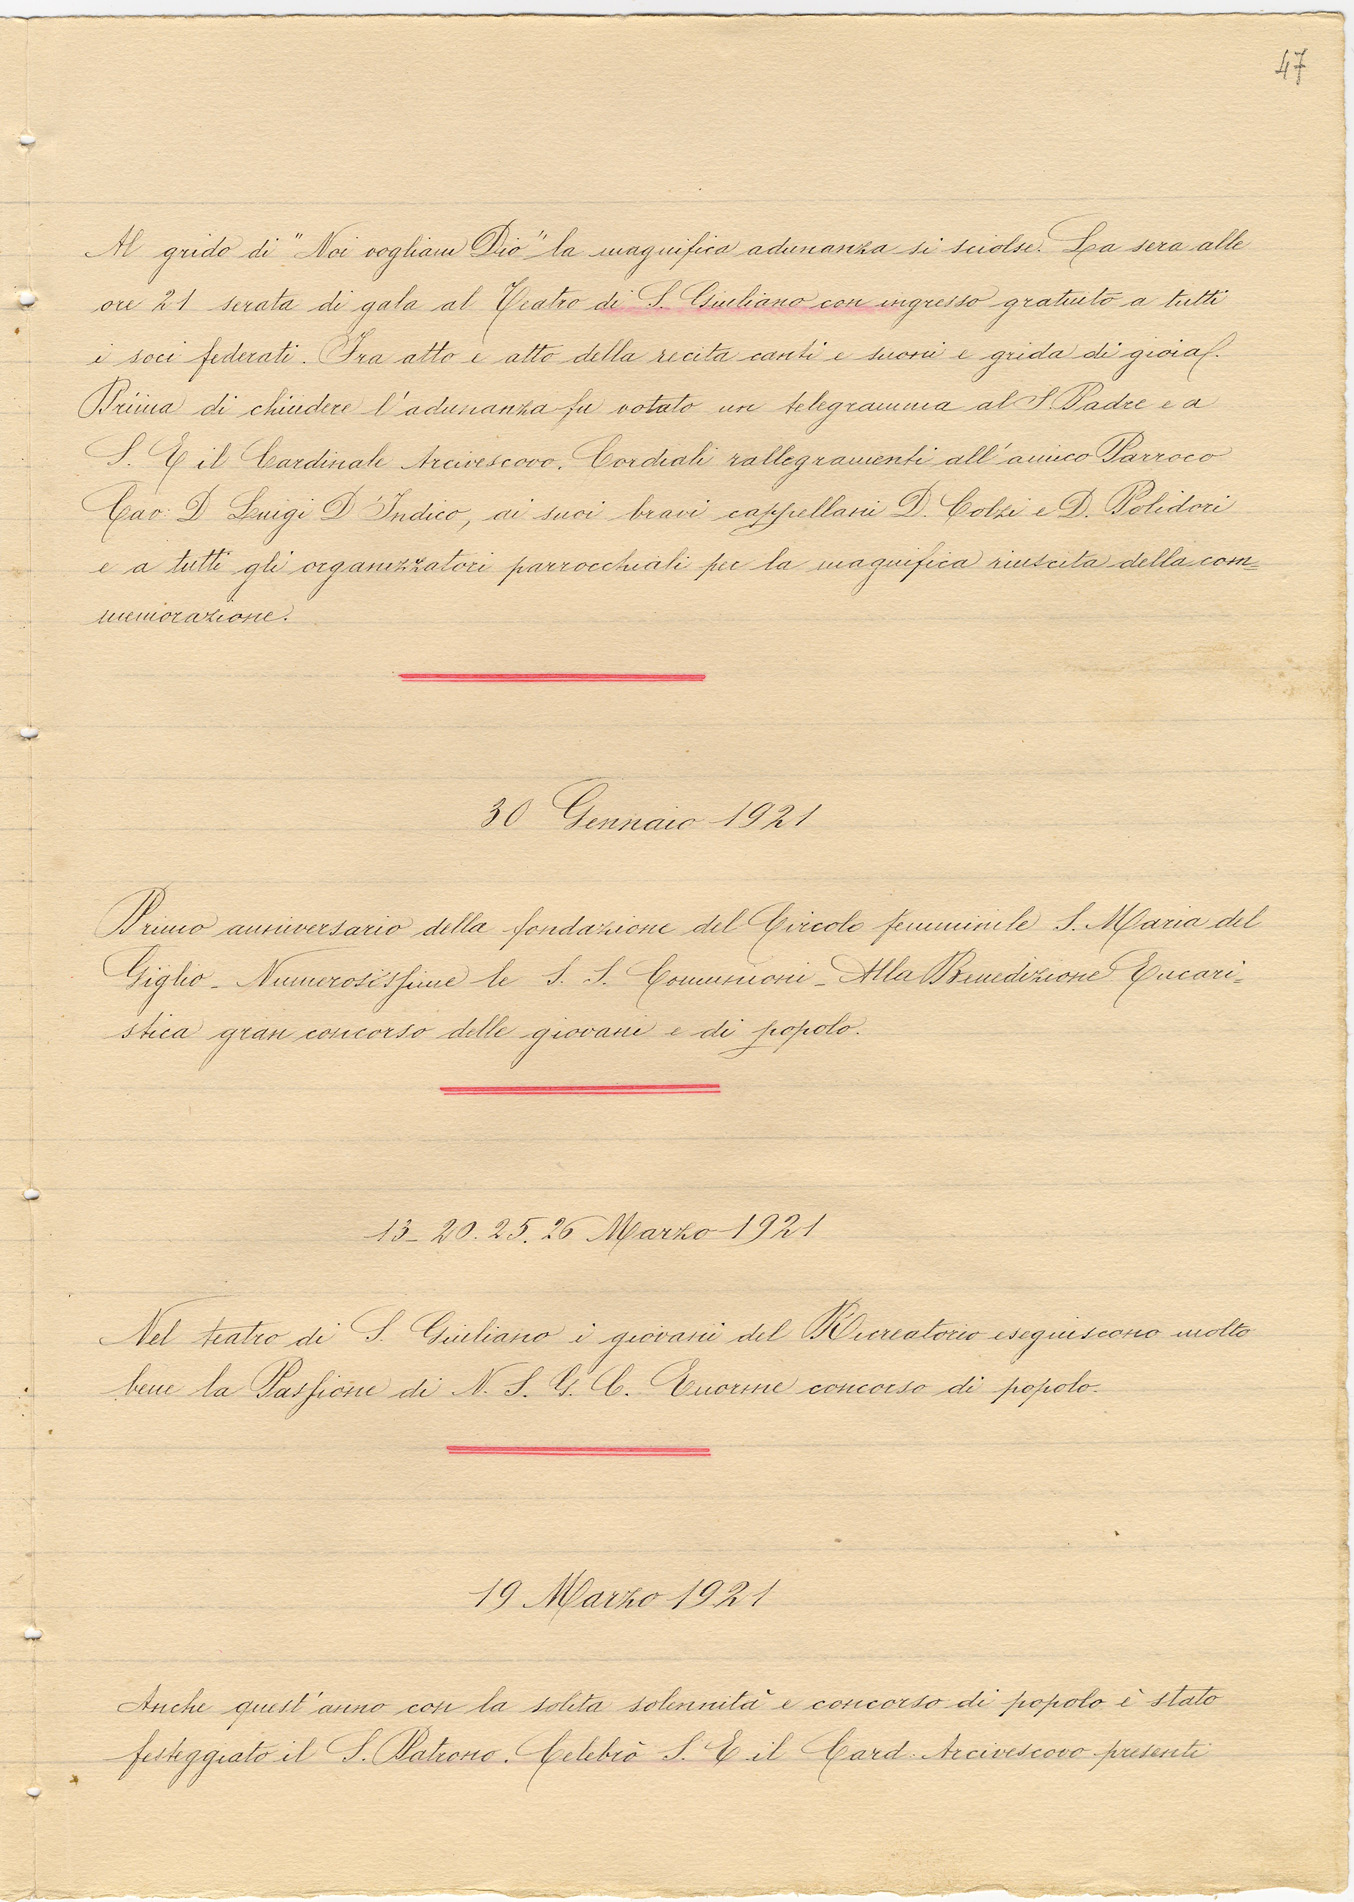 47
Al grido di "Noi vogliam Dio" la magnifica adunanza si sciolse. La sera alle
ore 21 serata di gala al Teatro di S. Giuliano con ingresso gratuito a tutti
i soci federati. Tra atto e atto della recita canti e suoni e grida di gioia!.
Prima di chiudere l'adunanza fu votato un telegramma al S. Padre e a
S. E il Cardinale Arcivescovo. Cordiali rallegramenti all'amico Parroco
Cav: D Luigi D'Indico, ai suoi bravi cappellani D. Colzi e D. Polidori
e a tutti gli organizzatori parrocchiali per la magnifica riuscita della com=
memorazione.
30 Gennaio 1921
Primo anniversario della fondazione del Circolo femminile S. Maria del
Giglio - Numerosissime le S. S. Comunioni - Alla Benedizione Eucari=
stica gran concorso delle giovani e di popolo.
13- 20. 25. 26 Marzo 1921
Nel teatro di S. Giuliano i giovani del Ricreatorio eseguiscono molto
bene la Passione di N. S. G. C. Enorme concorso di popolo.
19 Marzo 1921
Anche quest'anno con la solita solennità e concorso di popolo è stato
festeggiato il S. Patrono. Celebrò S. E il Card. Arcivescovo presenti